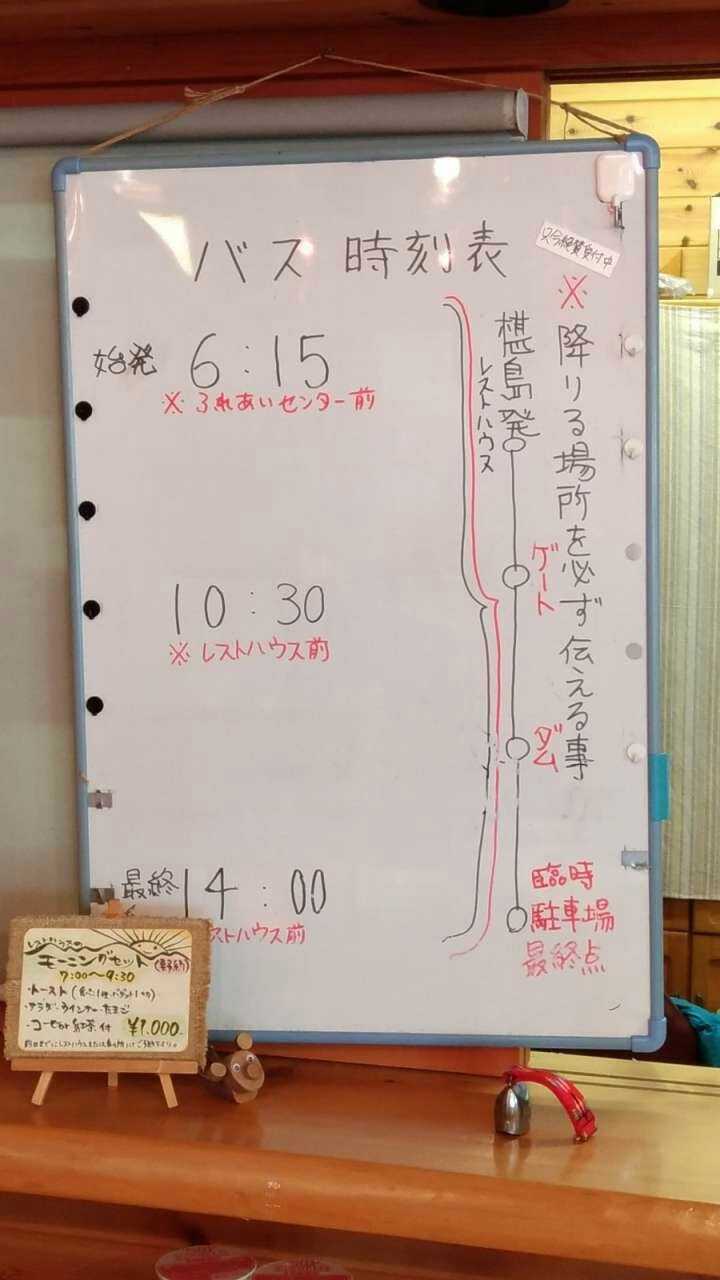 バス 時刻表
只今絶賛受付中
始発 6:15
※ ふれあいセンター前
10:30
※ レストハウス前
最終 14:00
ストハウス前
椹島発
レストハウス
ゲート
ダム
臨時
駐車場
最終点
※降りる場所を必ず伝える事
レストハウスの
モーニングセット(要予約)
7:00〜9:30
・トースト
・サラダ・ウインナー・たまご
・コーヒーor紅茶付 ¥1,000